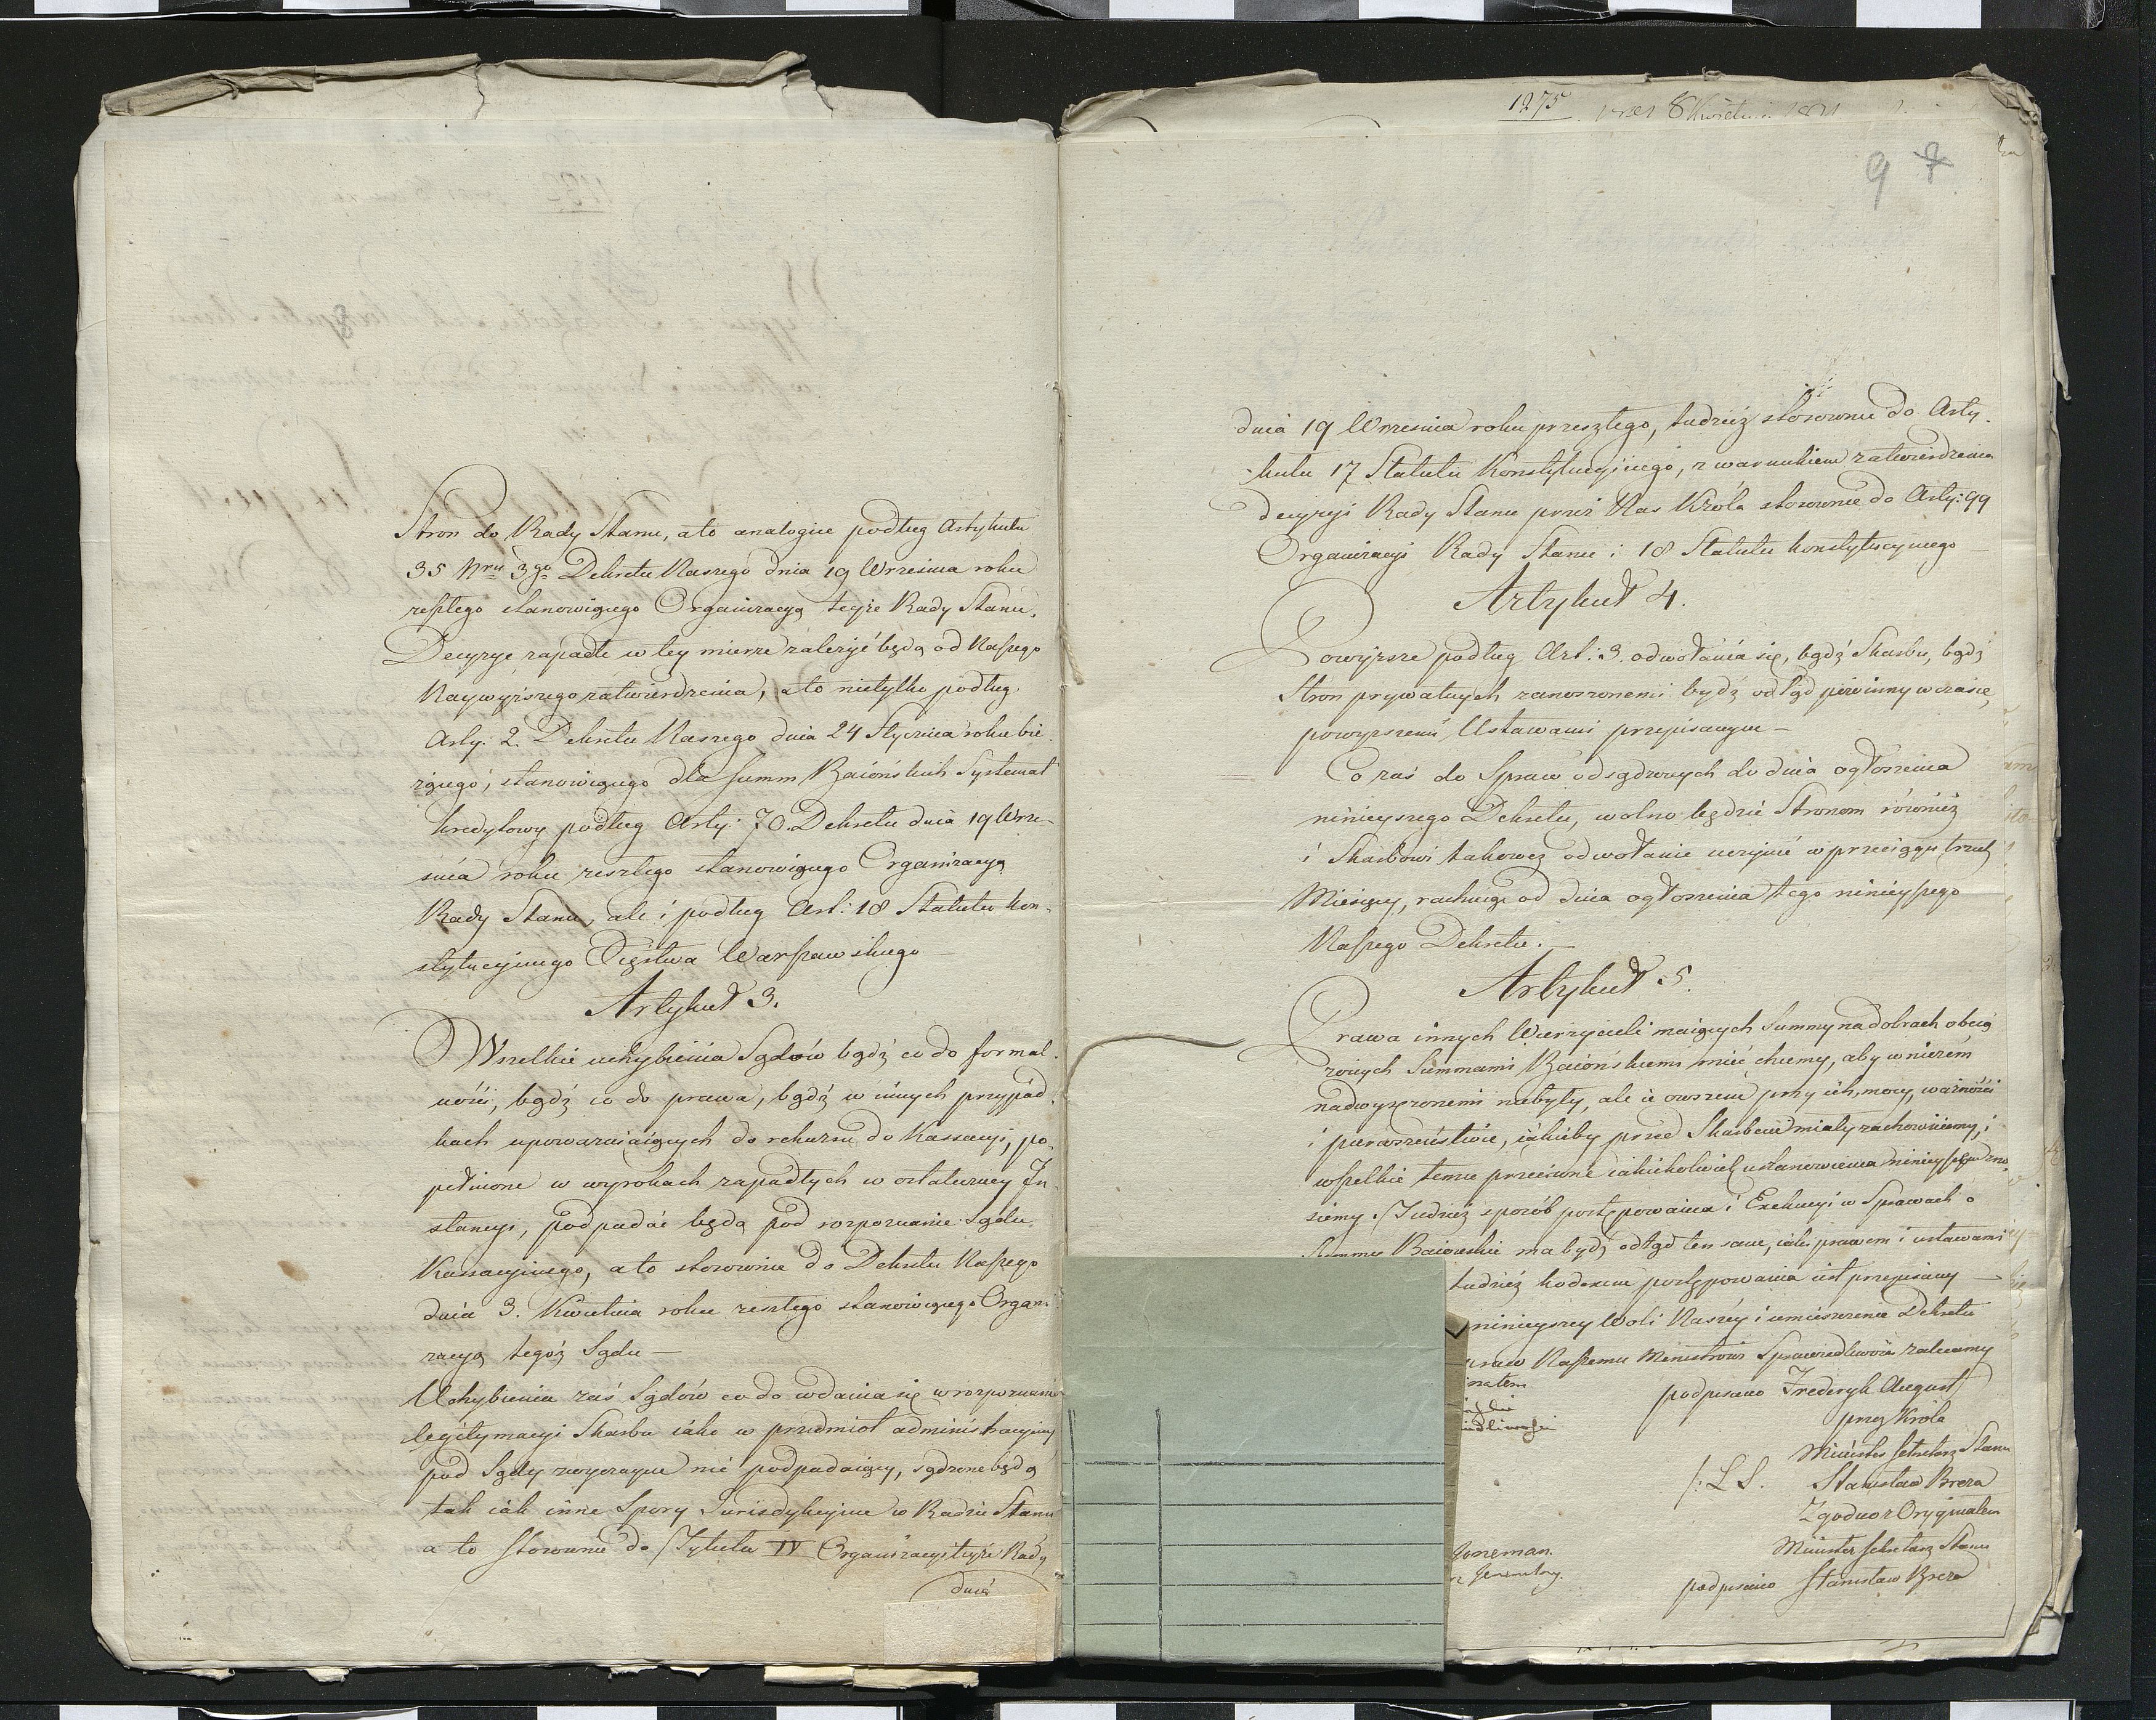 Stron do Rady Stanu, a to analogice podług Artykułu
35 Nru 3go Dekretu Naszego dnia 19 Września roku
zeszłego stanowiącego Organizacyą teyże Rady Stanu.
Decyzye zapadłe w tey mierze zależyć będą od Naszego
Naywyższego zatwierdzenia, a to nietylko podług
Arty: 2. Dekretu Naszego dnia 24 Stycznia roku bie-
żącego, stanowiącego dla Summ Baiońskich Systemat
kredytowy podług Arty: 70. Dekretu dnia 19 Wrze-
śnia roku zeszłego stanowiącego Organizacyą
Rady Stanu, ale i podług Art: 18 Statutu kon-
stytucyinego Xięstwa Warszawskiego
Artykuł 3.
Wszelkie uchybienia Sądów bądź co do formal-
ności, bądź co do prawa, bądź w innych przypad-
kach upoważniaiących do rekursu do Kassacyi, po-
pełnione w wyrokach zapadłych w ostateczney In-
stancyi, podpadać będą pod rozpoznanie Sądu
Kassacyinego, a to stosownie do Dekretu Naszego
dnia 3. Kwietnia roku zeszłego stanowiącego Organi-
zacyą tegoż Sądu —
Uchybienia zaś Sądów co do wdania się w rozpoznanie
legitymacyi Skarbu iako w przedmiot administracyiny
pod Sądy zwyczayne nie podpadaiący, sądzone będą
tak iak inne Spory Jurisdykcyine w Radzie Stanu
a to stosownie do Tytułu IV Organizacyi teyże Rady
dnia
1275. 8 Kwietnia 1811
9 7
dnia 19 Września roku przeszłego, tudzież stosownie do Arty-
kułu 17 Statutu Konstytucyinego, z warunkiem zatwierdzenia
decyzyi Rady Stanu przez Nas Króla stosownie do Arty: 99
Organizacyi Rady Stanu i 18 Statutu konstytucyinego
Artykuł 4.
Powyższe podług Art: 3. odwołania się, bądź Skarbu, bądź
Stron prywatnych zanoszonemi bydź odtąd powinny w czasie,
powyższemi Ustawami przepisanym —
Co zaś do Spraw odsądzonych do dnia ogłoszenia
ninieyszego Dekretu, wolno będzie Stronom również
i Skarbowi takowez odwołanie uczynić w przeciągu trzech
Miesięcy, rachuiąc od dnia ogłoszenia tego ninieyszego
Naszego Dekretu. —
Artykuł 5.
Prawa innych Wierzycieli maiących Summy na dobrach obcią-
żonych Summami Baiońskiemi mieć chcemy, aby w niczém
nadwyrężonemi niebyły, ale ie owszem przy ich mocy, ważności
i pierwszeństwie, iakieby przed Skarbem miały zachowuiemy, i
wszelkie temu przeciwne iakiekolwiek ustanowienia ninieyszym zno-
siemy. Tudzież sposób postępowania i Exekucyi w Sprawach o
Summy Baiońskie ma bydź odtąd ten sam, iaki prawem i ustawami
tudzież kodexem postępowania iest przepisany —
ninieyszey Woli Naszey i umieszczenie Dekretu
praw Naszemu Ministrowi Sprawiedliwości zalecamy
podpisano Fryderyk August
przez Króla
Minister Sekretarz Stanu
/: L S. Stanisław Breza
Zgodno z Oryginałem
Minister Sekretarz Stanu
podpisano Stanisław Breza